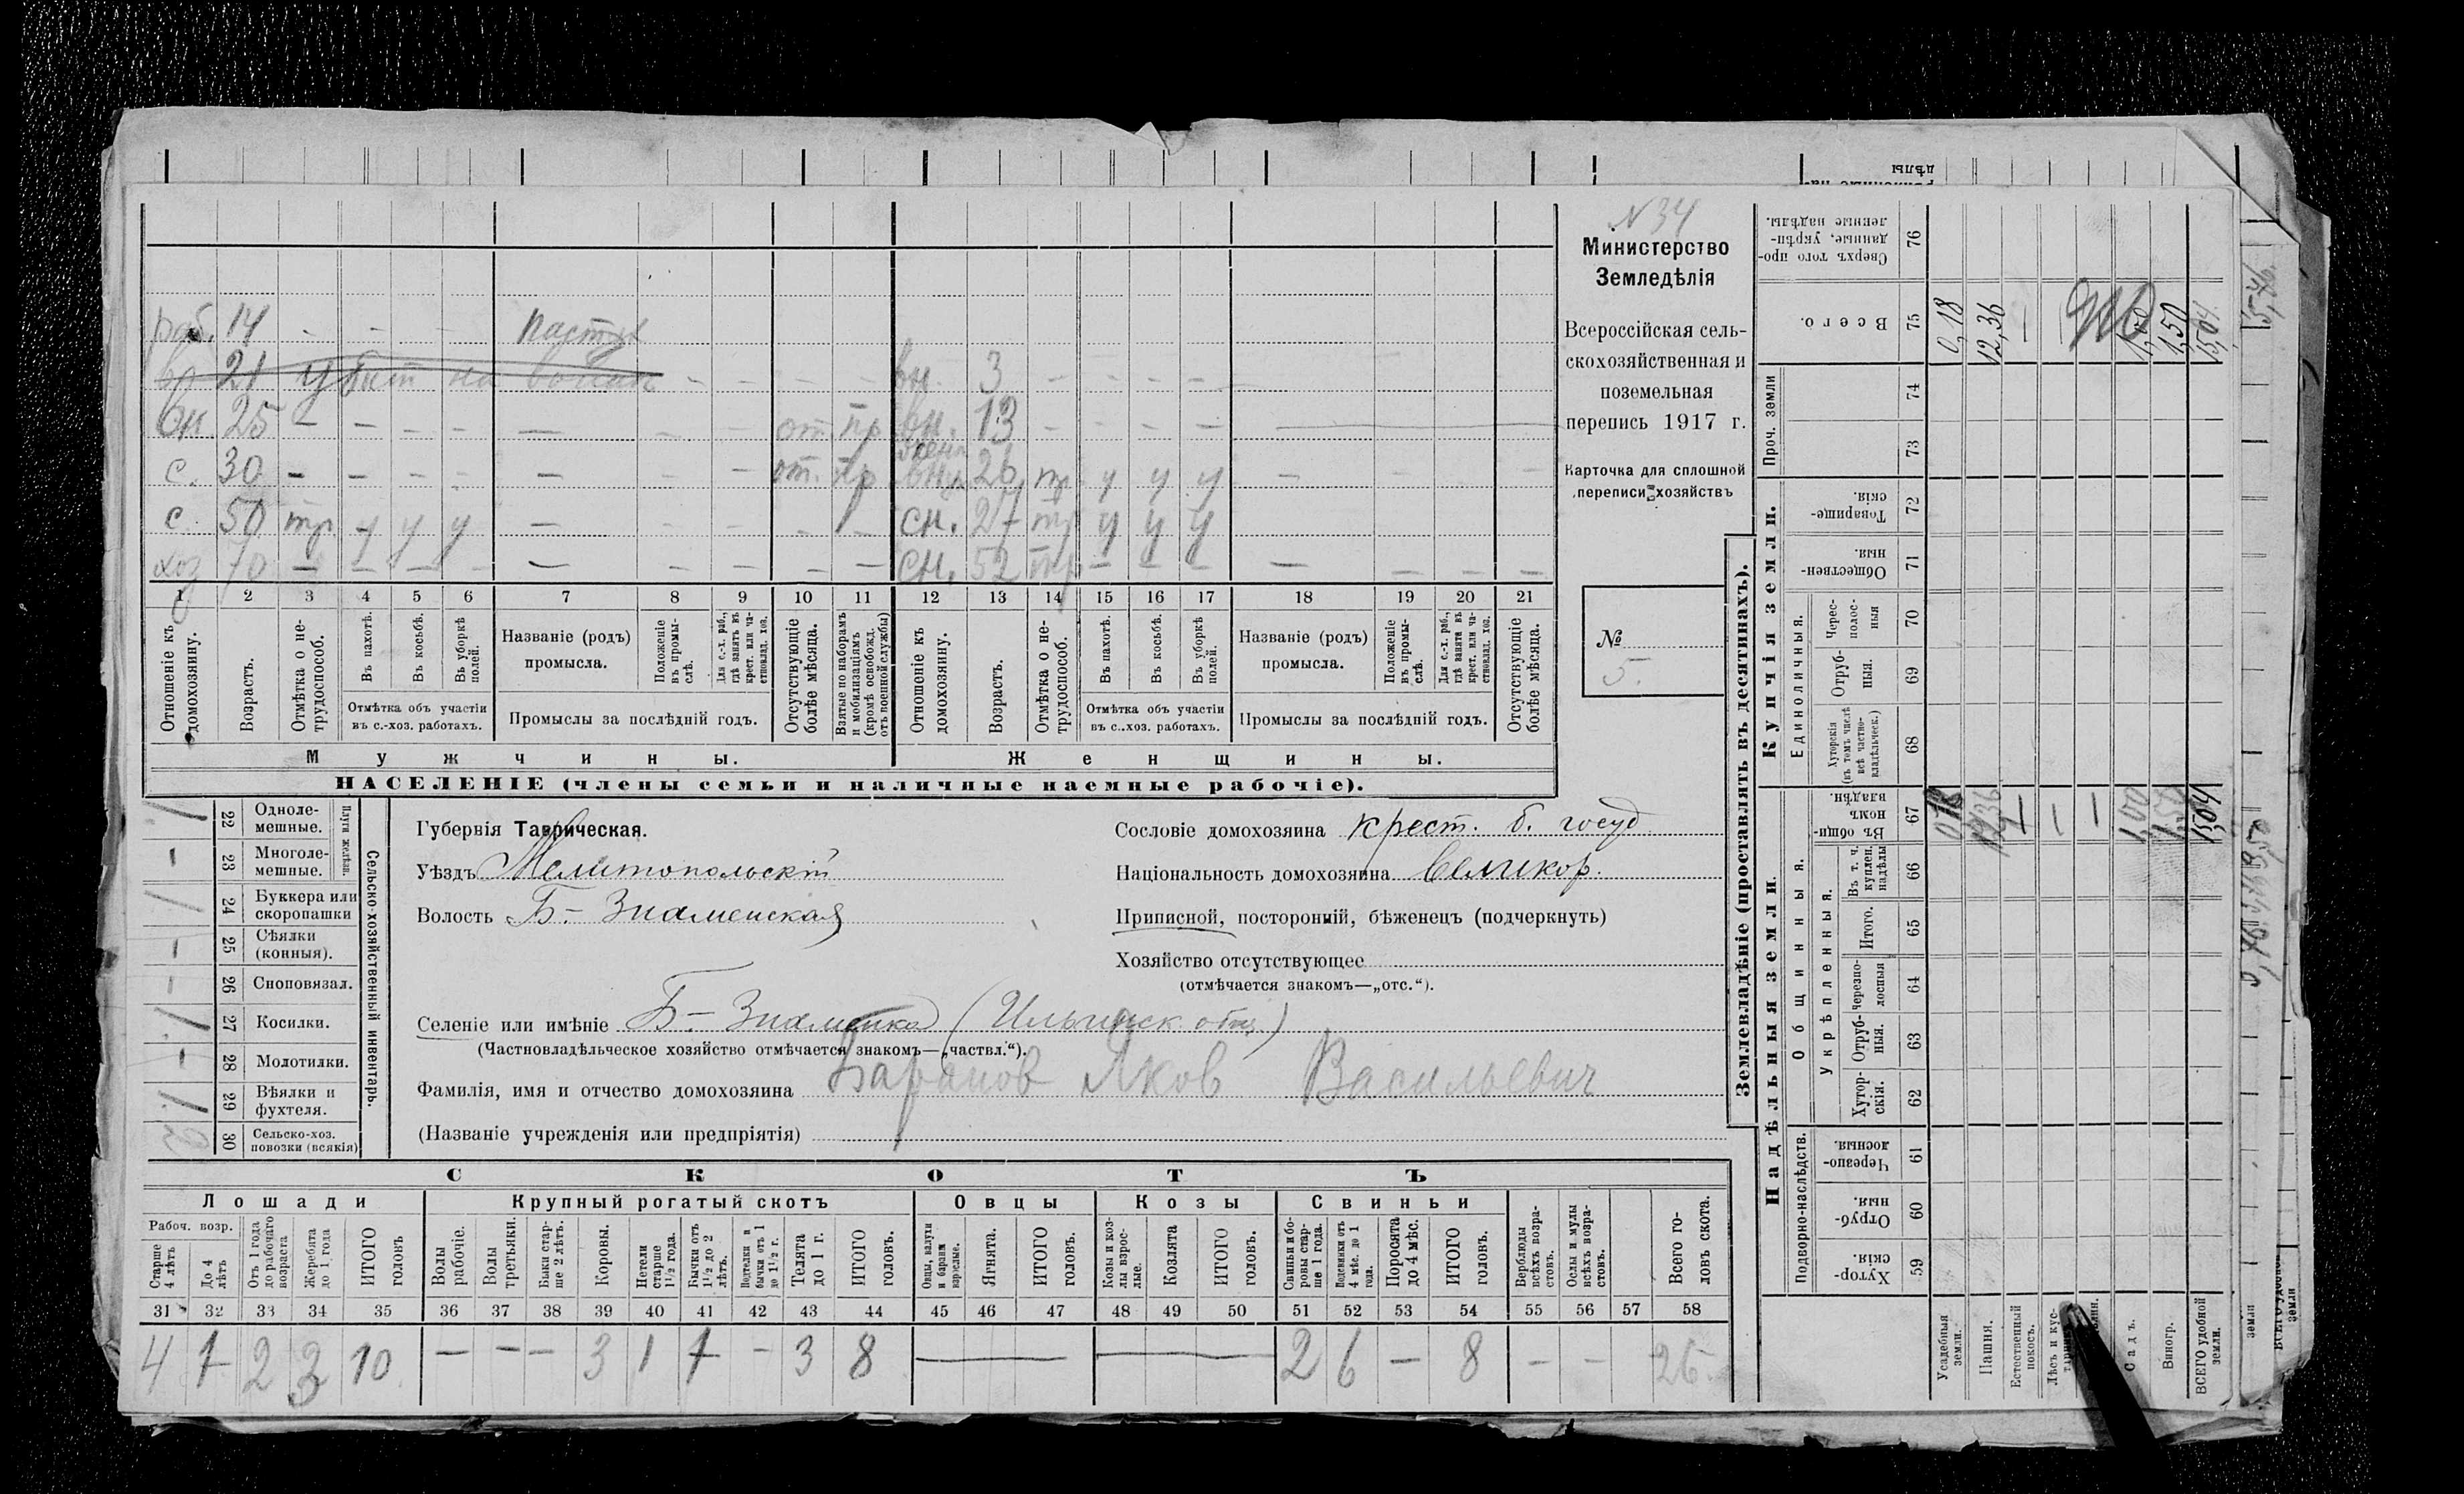 N 34
Министерство
Земледѣлія
Всероссійская сель-
скохозяйственная и
поземельная
перепись 1917 г.
Карточка для сплошной
переписи хозяйствъ
№
5.
раб. 14 - - - пастух
21 убит на войне - - - - - вн. 3 - - - - -
вн 25 - - - - - - - от. пр вн. 13 - - - -
с. 30 - - - - - - - от. пр 26 тр. у у у - -
с. 50 тр. у у у - - - - - сн. 27 тр у у у
хоз 70 - - - - - - - - - сн. 52 тр - - - - - - -
1 2 3 4 5 6 7 8 9 10 11 12 13 14 15 16 17 18 19 20 21
Отношеніе къ домохозяину.
Возрастъ.
Отмѣтка о не-трудоспособ.
Въ пахотѣ.
Въ косьбѣ.
Въ уборкѣ полей.
Отмѣтка объ участіи
въ с.-хоз. работахъ.
Названіе (родъ)
промысла.
Положеніе въ промы-слѣ.
Для с.-х. раб., гдѣ занятъ въ крест. или ча-стновлад. хоз.
Промыслы за послѣдній годъ.
Отсутствующіе болѣе мѣсяца.
Взятые по наборамъ и мобилизаціямъ (кромѣ освобожд. отъ военной службы)
Отношеніе къ домохозяину.
Возрастъ.
Отмѣтка о не-трудоспособ.
Въ пахотѣ.
Въ косьбѣ.
Въ уборкѣ полей.
Отмѣтка объ участіи
въ с.-хоз. работахъ.
Названіе (родъ)
промысла.
Положеніе въ промы-слѣ.
Для с.-х. раб., гдѣ занята въ крест. или ча-стновлад. хоз.
Промыслы за послѣдній годъ.
Отсутствующіе болѣе мѣсяца.
Мужчины. Женщины.
НАСЕЛЕНІЕ (члены семьи и наличные наемные рабочіе).
1 22 Одноле-мешные.
- 23 Многоле-мешные.
Плуги желѣзн.
1 24 Буккера или скоропашки
- 25 Сѣялки (конныя).
- 26 Сноповязал.
1 27 Косилки.
- 28 Молотилки.
1 29 Вѣялки и фухтеля.
2 30 Сельско-хоз. повозки (всякія)
Сельско-хозяйственный инвентарь.
Губернія Таврическая.
Уѣздъ Мелитопольскій
Волость Б-Знаменская
Сословіе домохозяина крест. б. госуд
Національность домохозяина великор.
Приписной, посторонній, бѣженецъ (подчеркнуть)
Хозяйство отсутствующее
(отмѣчается знакомъ—„отс.“).
Селеніе или имѣніе Б-Знаменка (Ильинск. общ.)
(Частновладѣльческое хозяйство отмѣчается знакомъ—„частвл.“).
Фамилія, имя и отчество домохозяина Баранов Яков Васильевич
(Названіе учрежденія или предпріятія)
СКОТЪ
Лошади Крупный рогатый скотъ Овцы Козы Свиньи
Рабоч. возр.
Старше 4 лѣтъ
До 4 лѣтъ
Отъ 1 года до рабочаго возраста
Жеребята до 1 года
ИТОГО головъ
Волы рабочіе.
Волы третьяки.
Быки стар-ше 2 лѣтъ.
Коровы.
Нетели старше 1½ года.
Бычки отъ 1½ до 2 лѣтъ.
Подтелки и бычки отъ 1 до 1½ г.
Телята до 1 г.
ИТОГО головъ.
Овцы, валухи и бараны взрослые.
Ягнята.
ИТОГО головъ.
Козы и коз-лы взрос-лые.
Козлята
ИТОГО головъ.
Свиньи и бо-ровы стар-ше 1 года.
Подсвинки отъ 4 мѣс. до 1 года.
Поросята до 4 мѣс.
ИТОГО головъ.
Верблюды всѣхъ возра-стовъ.
Ослы и мулы всѣхъ возра-стовъ.
Всего го-ловъ скота.
31 32 33 34 35 36 37 38 39 40 41 42 43 44 45 46 47 48 49 50 51 52 53 54 55 56 57 58
4 1 2 3 10 - - - 3 1 1 - 3 8 2 6 - 8 - - 26
Землевладѣніе (проставлять въ десятинахъ).
Купчія земли.
Надѣльныя земли.
Сверхъ того про-данные, укрѣп-ленные надѣлы. 76
Всего. 75 0,18 12,36 - 1,00 1,50 15,04
Проч. земли 74 73
Товарище-скія. 72
Обществен-ныя. 71
Единоличныя.
Черес-полос-ныя 70
Отруб-ныя. 69
Хуторскія (въ томъ числѣ всѣ частно-владѣльческ.) 68
Общинныя.
Въ общи-номъ владѣн. 67 0,18 12,36 1,00 1,50 15,04
Укрѣпленныя.
Въ т. ч. куплен. надѣлы 66
Итого. 65
Черезпо-лосныя 64
Отруб-ныя. 63
Хутор-скія. 62
Подворно-наслѣдств.
Черезпо-лосныя. 61
Отруб-ныя. 60
Хутор-скія. 59
Усадебныя земли.
Пашня.
Естественный покосъ.
Лѣсъ и кус-
Садъ.
Виногр.
ВСЕГО удобной земли.
земли
земли
дѣлы